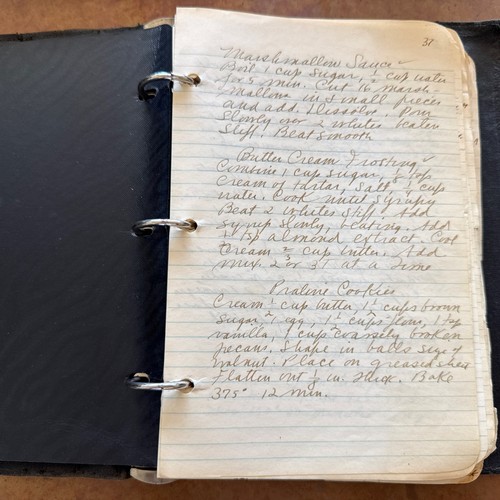 37
Marshmallow Sauce
Boil 1 cup sugar, ½ cup water
for 5 min. Cut 16 marsh-
mallows in small pieces
and add. Dissolve. Pour
slowly over 2 whites beaten
stiff. Beat smooth
Butter Cream Frosting
Combine 1 cup sugar, ⅛ tsp
cream of tartar, salt, ½ cup
water. Cook until syrupy
Beat 2 whites stiff. Add
syrup slowly, beating. Add
tsp almond extract. Cool
Cream ⅔ cup butter. Add
mix. 2 or 3 T at a time
Praline Cookies
Cream ½ cup butter, 1½ cups brown
sugar, 1 egg, 1½ cups flour, 1 tsp
vanilla, 1 cup coarsely broken
pecans. Shape in balls size of
walnut. Place on greased sheet
Flatten out ⅛ in. thick. Bake
375° 12 min.